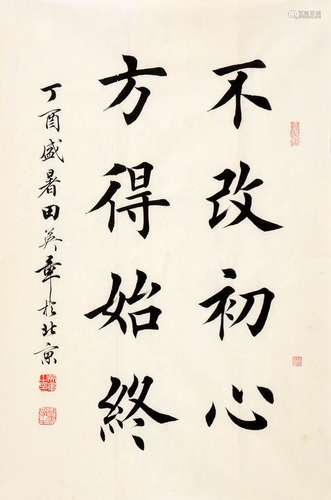 不改初心
方得始终
丁酉盛暑田英章於北京